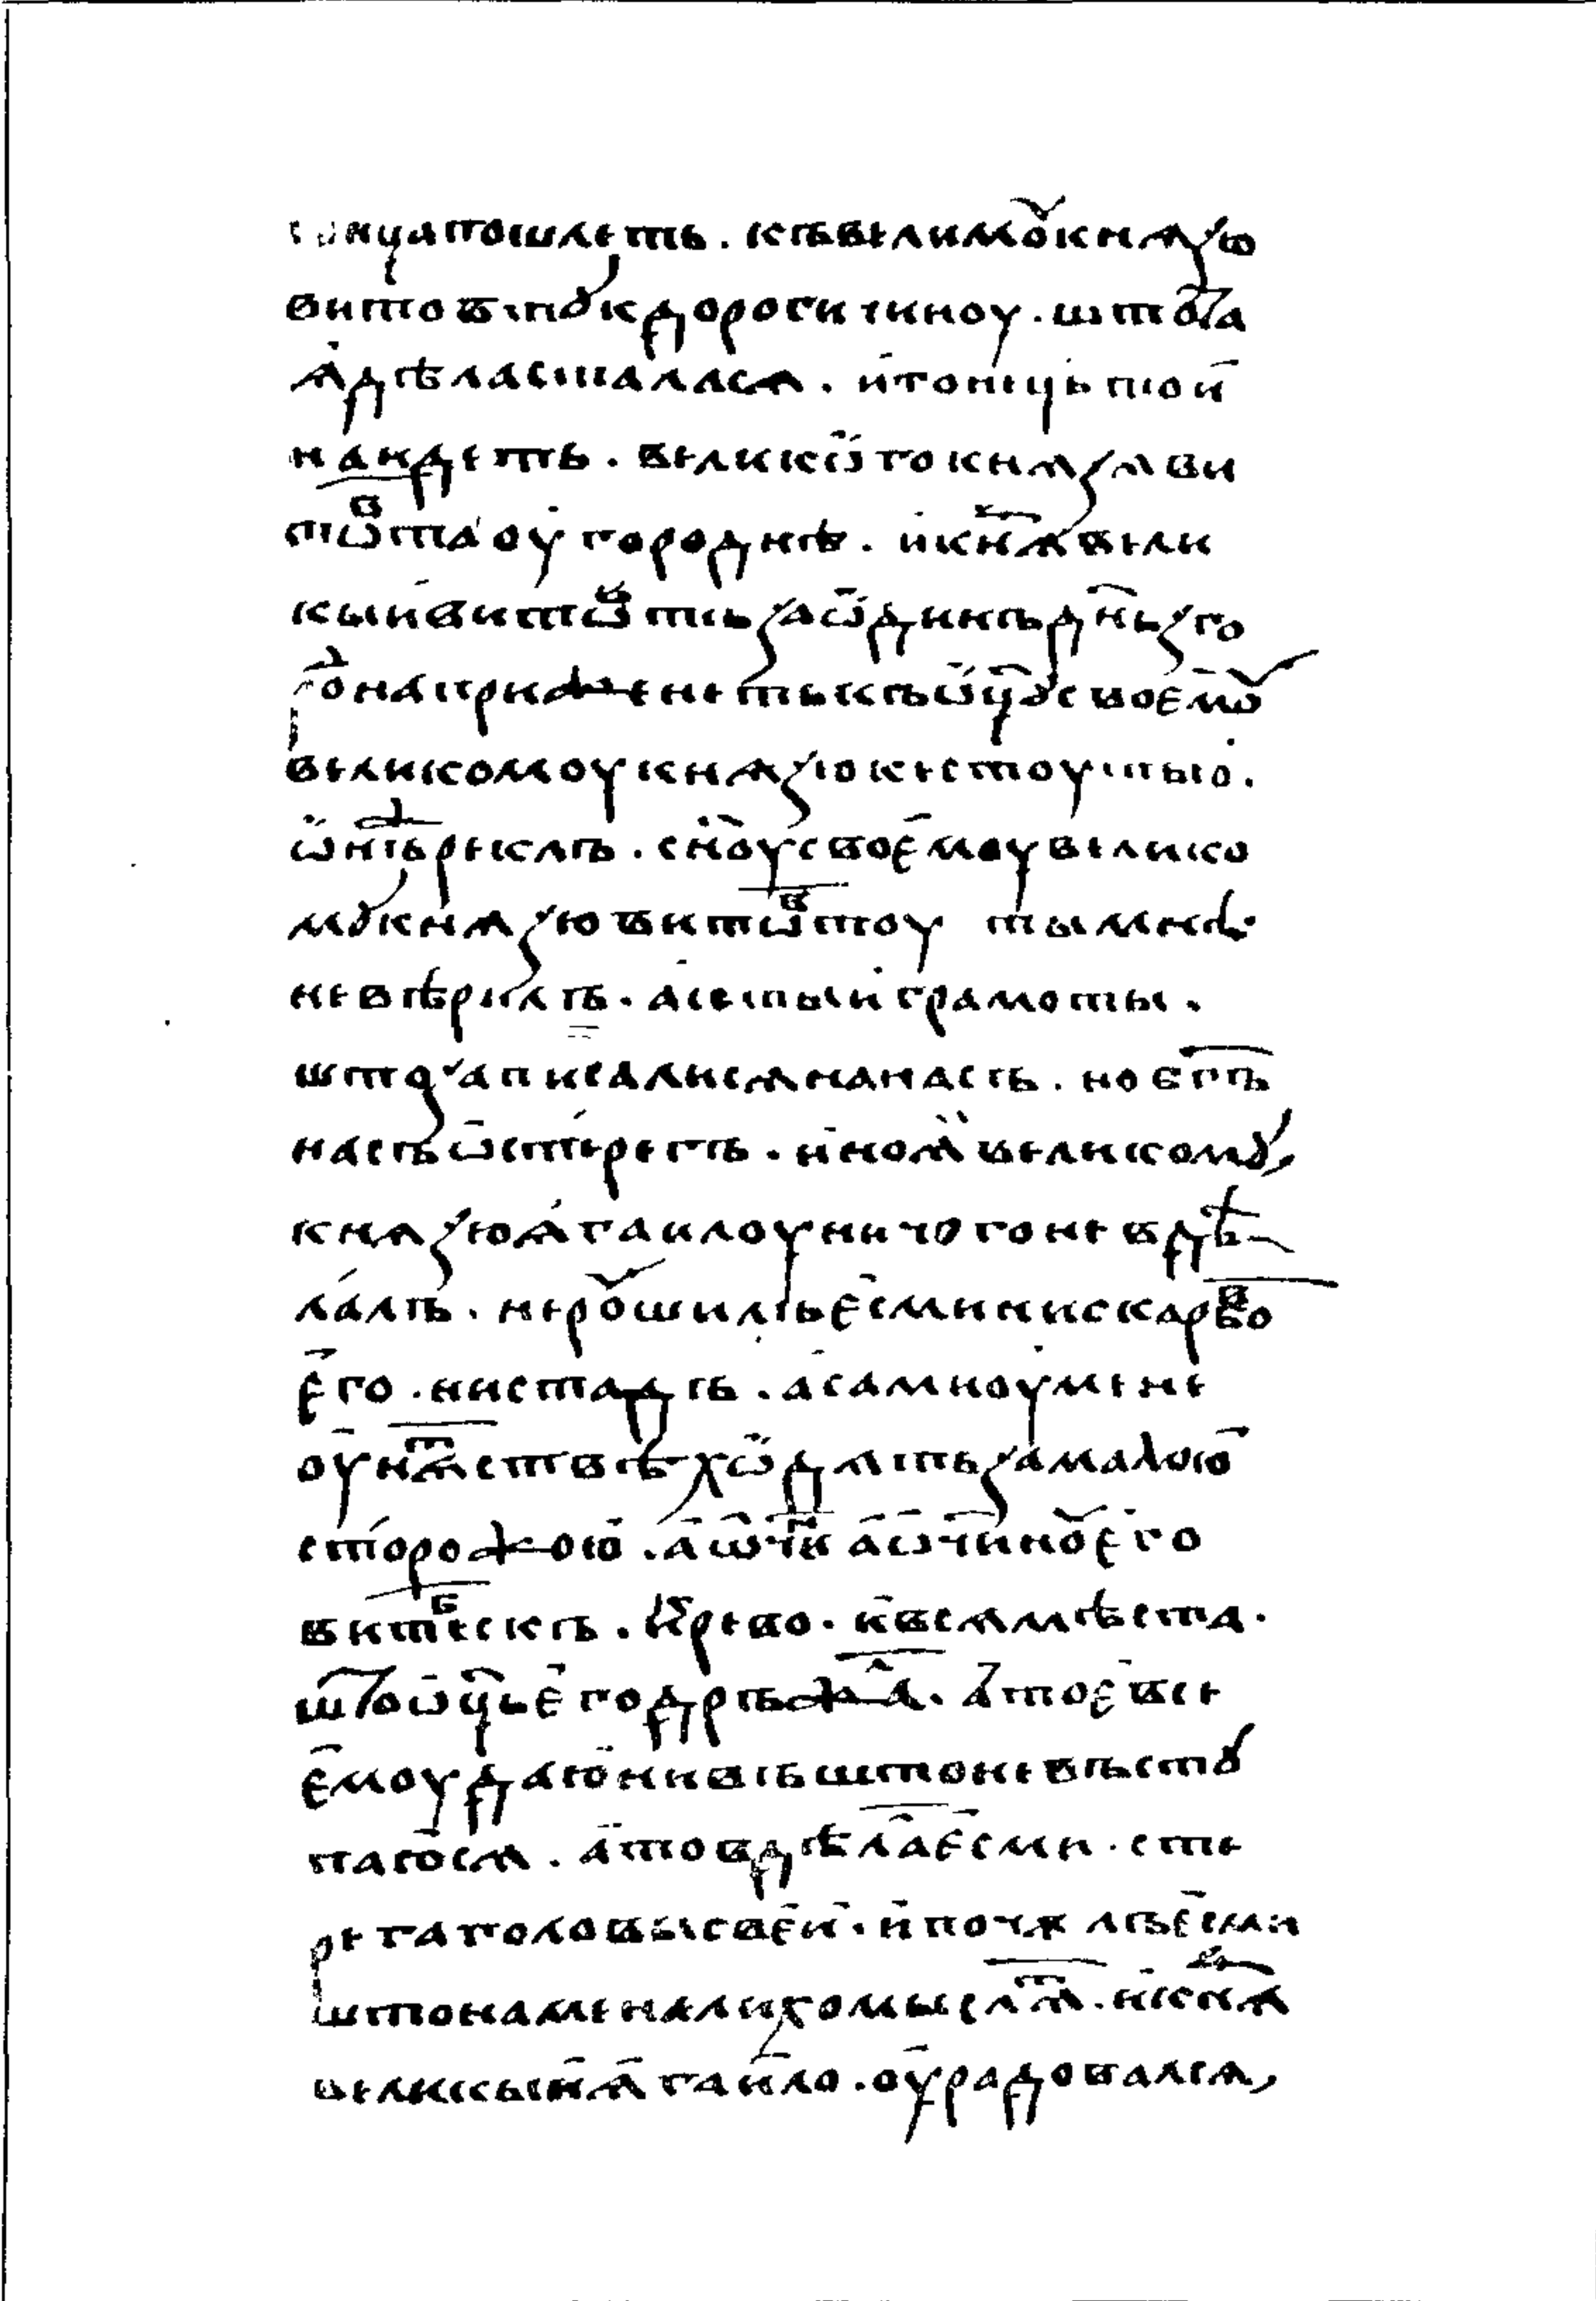 гонца пошлеть . къ велимꙋ кнѧзю
витовтꙋ к дорогичиноу . што та
ꙗ дѣла сталасѧ . и гонець той
наидеть . великѡго кнѧзѧ ви
тѡвта оу городнѣ . и кнѧз вели
кый витѡвть за ѡдинъ днь з го
родна приженеть къ ѡцꙋ своемꙋ
великомоу кнѧзю кестоутью .
ѡнъ же реклъ . сн҃оу своемоу велико
мꙋ кнѧзю витѡвтоу ты мнѣ
не вѣрилъ . а се тыи грамоты .
што записалисѧ на насъ . но бг҃ъ
насъ ѡстерегъ . и но ꙗ великомꙋ
кнѧзю ꙗгаилоу ничого не вдѣ
лалъ . не рꙋшилъ есми ни скарбов
его . ни стадъ . а сам и оу мене
оу нѧтствѣ ходѧть за малою
сторожою . а ѡтчин а ѡтчинꙋ его
витебскъ . и крево . и всѧ мѣста .
што ѡц҃ь его држал . а то е все
емоу даю и ни въ што не въстꙋ
пагосѧ . а то вдѣла есми . сте
рега головы своеи . и почюлъ есми
што на мене лихо мыслѧт . и кнѧз
великыи ꙗгаило . оурадовалсѧ ,